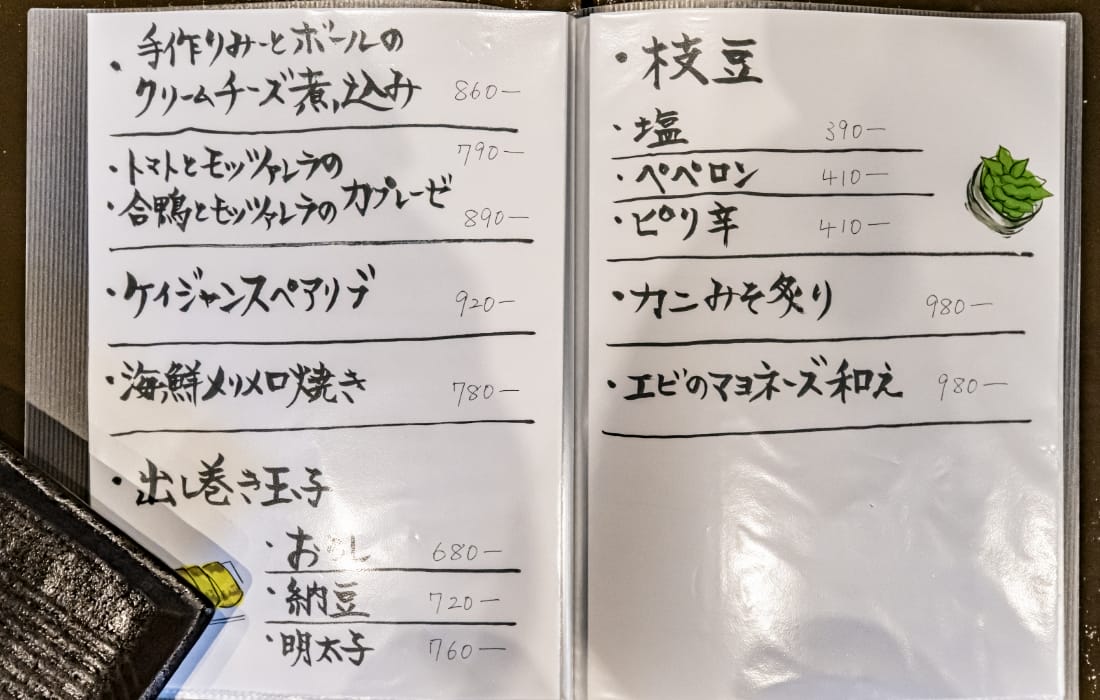 ・手作りみーとボールの
クリームチーズ煮込み 860ー
・トマトとモッツァレラの 790ー
・合鴨とモッツァレラのカプレーゼ 890ー
・ケイジャンスペアリブ 920ー
・海鮮メリメロ焼き 780ー
・出し巻き玉子
・ 680ー
・納豆 720ー
・明太子 760ー
・枝豆
・塩 390ー
・ペペロン 410ー
・ピリ辛 410ー
・カニみそ炙り 980ー
・エビのマヨネーズ和え 980ー